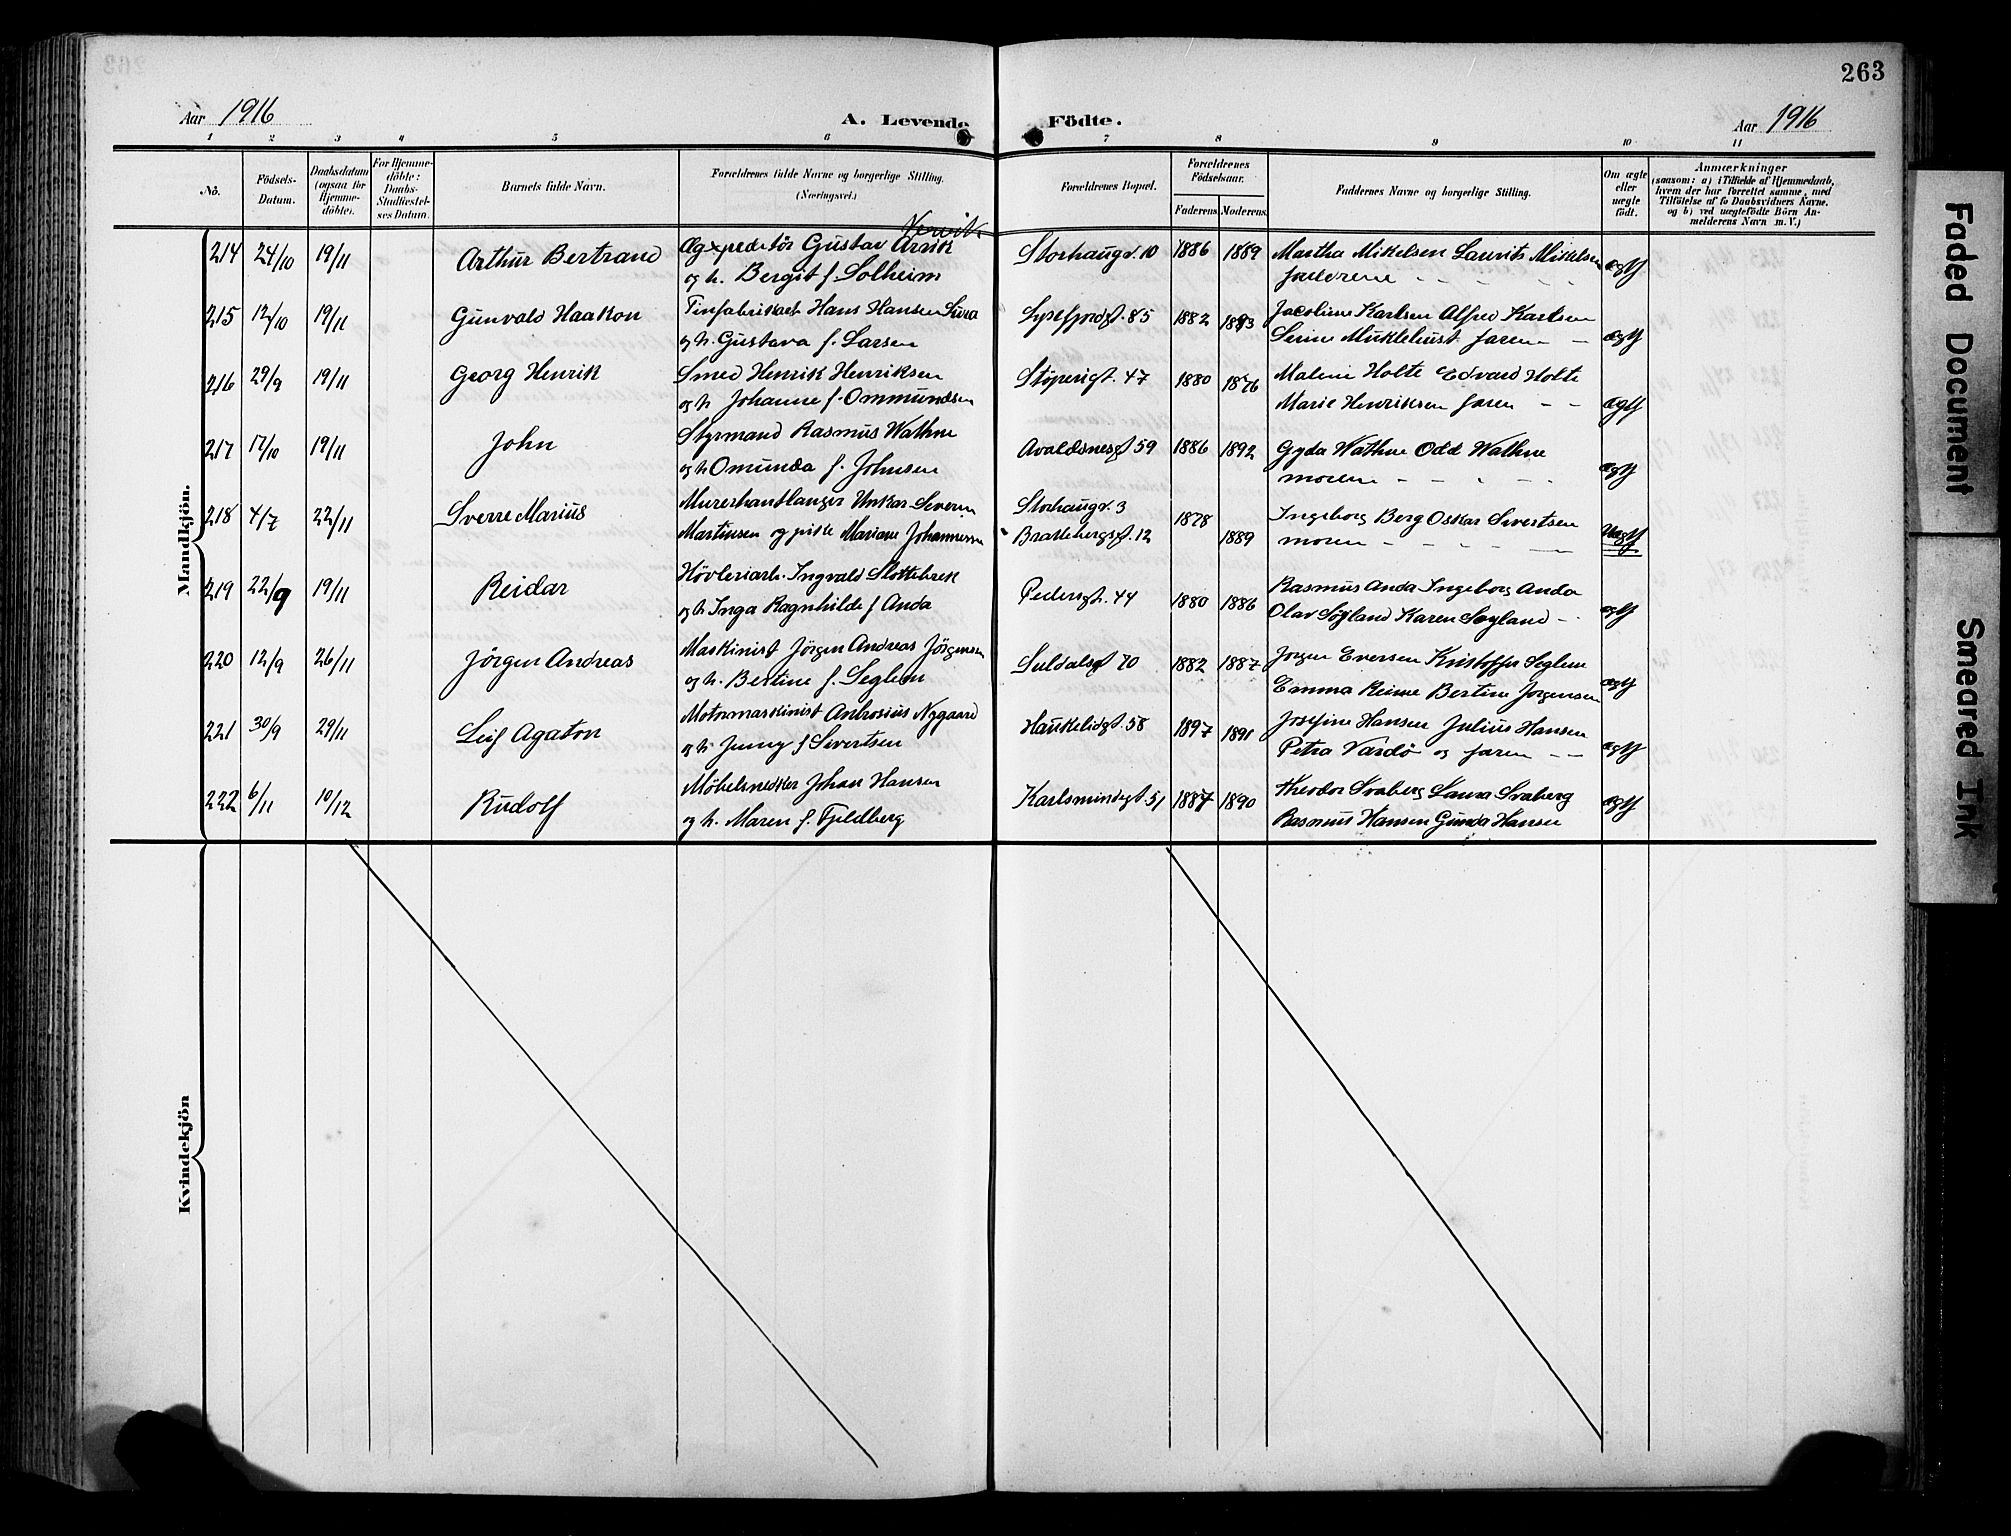 263
Aar 1916
A. Levende Fødte.
Aar 1916
1 2 3 4 5 6 7 8 9 10 11
No.
Födsels-Datum.
Daabsdatum (ogsaa for Hjemme-döbte).
For Hjemme-döbte: Daabs-Stadfæstel-ses Datum.
Barnets fulde Navn.
Forældrenes fulde Navne og borgerlige Stilling. (Næringsvei.)
Forældrenes Bopæl.
Forældrenes Födselsaar.
Faderens. Moderens.
Faddernes Navne og borgerlige Stilling.
Om ægte eller uægte födt.
Anmærkninger
(saasom: a) i Tilfælde af Hjemmedaab, hvem der har forrettet samme, med Tilföielse af to Daabsvidners Navne. og b) ved uægtefödte Börn An-melderens Navn m. V.)
Mandkjön.
214 24/10 19/11 Arthur Bertrand Gustav og h. Bergit f. Solheim Storhaugv. 10 1886 1889 Martha Mikelsen Laurits Mikelsen ægtf
215 12/10 19/11 Gunvald Haakon Hans Hansen og h. Gustava f. Larsen Lysefjordgt. 85 1882 1883 Jacoline Karlsen Alfred Karlsen faren ægtf
216 29/9 19/11 Georg Henrik Smed Henrik Henriksen og h Johanne f. Ommundsen Støperigt. 47 1880 1876 Malene Holte Edvard Holte Marie Henriksen faren - - ægtf
217 17/10 19/11 John Styrmand Rasmus Wathne og h Omunda f. Johnsen Avaldsnesgt 59 1886 1892 Gyda Wathne Odd Wathne moren - - - - ægtf
218 4/7 22/11 Sverre Marius Murerhantlanger Severin Martinsen og pike Mariane Johannessen Storhaugv. 3 Brattebergsgt. 12 1878 1889 Ingeborg Berg Oskar Sivertsen moren - - - - uægtf
219 22/9 19/11 Reidar Hövleriarb. Ingvald Slottebrek og h Inga Ragnhilde f Anda Pedersgt. 44 1880 1886 Rasmus Anda Ingeborg Anda Olav Søyland Karen Søyland - ægtf
220 12/9 26/11 Jörgen Andreas Maskinist Jörgen Andreas Jörgensen og h. Bertine f. Seglem Suldalsgt 70 1882 1887 Jørgen Eversen Kristoffer Seglem Emma Reime Bertine Jørgensen ægtf
221 30/9 29/11 Leif Agaton Motormaskinist Ambrosius Nygaard og h Jenny f Sivertsen Haukeligt. 58 1897 1891 Josefine Hansen Julius Hansen Petra Vardö og faren - - ægtf
222 6/11 10/12 Rudolf Möbelsnedker Johan Hansen og h. Maren f. Fjeldberg Karlsmindegt. 51 1887 1890 Theodor Svaberg Laura Svaberg Rasmus Hansen Gunda Hansen ægtf
Kvindekjön
Faded Document
Smeared Ink